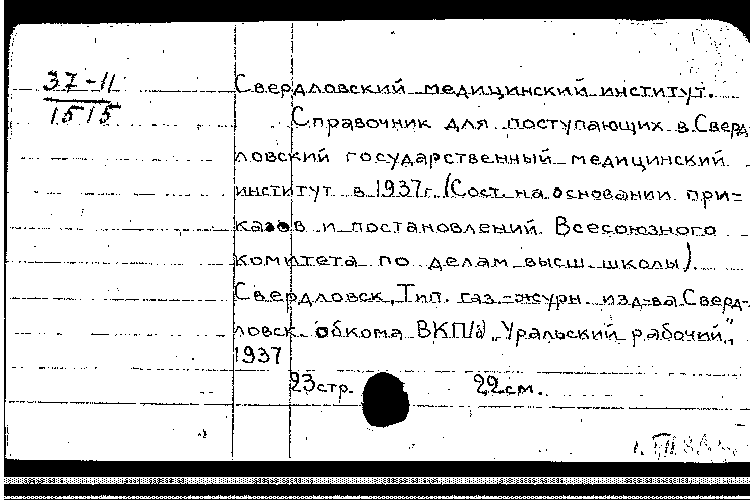 37-11
1515
Свердловский медицинский институт.
Справочник для поступающих в Сверд-
ловский государственный медицинский
институт в 1937г. (Сост. на основании при=
казов и постановлений Всесоюзного
комитета по делам высш. школы).
Свердловск, Тип. газ.-журн. изд-ва Сверд-
ловск. обкома ВКП/б/ „Уральский рабочий",
1937
23стр. 22см.